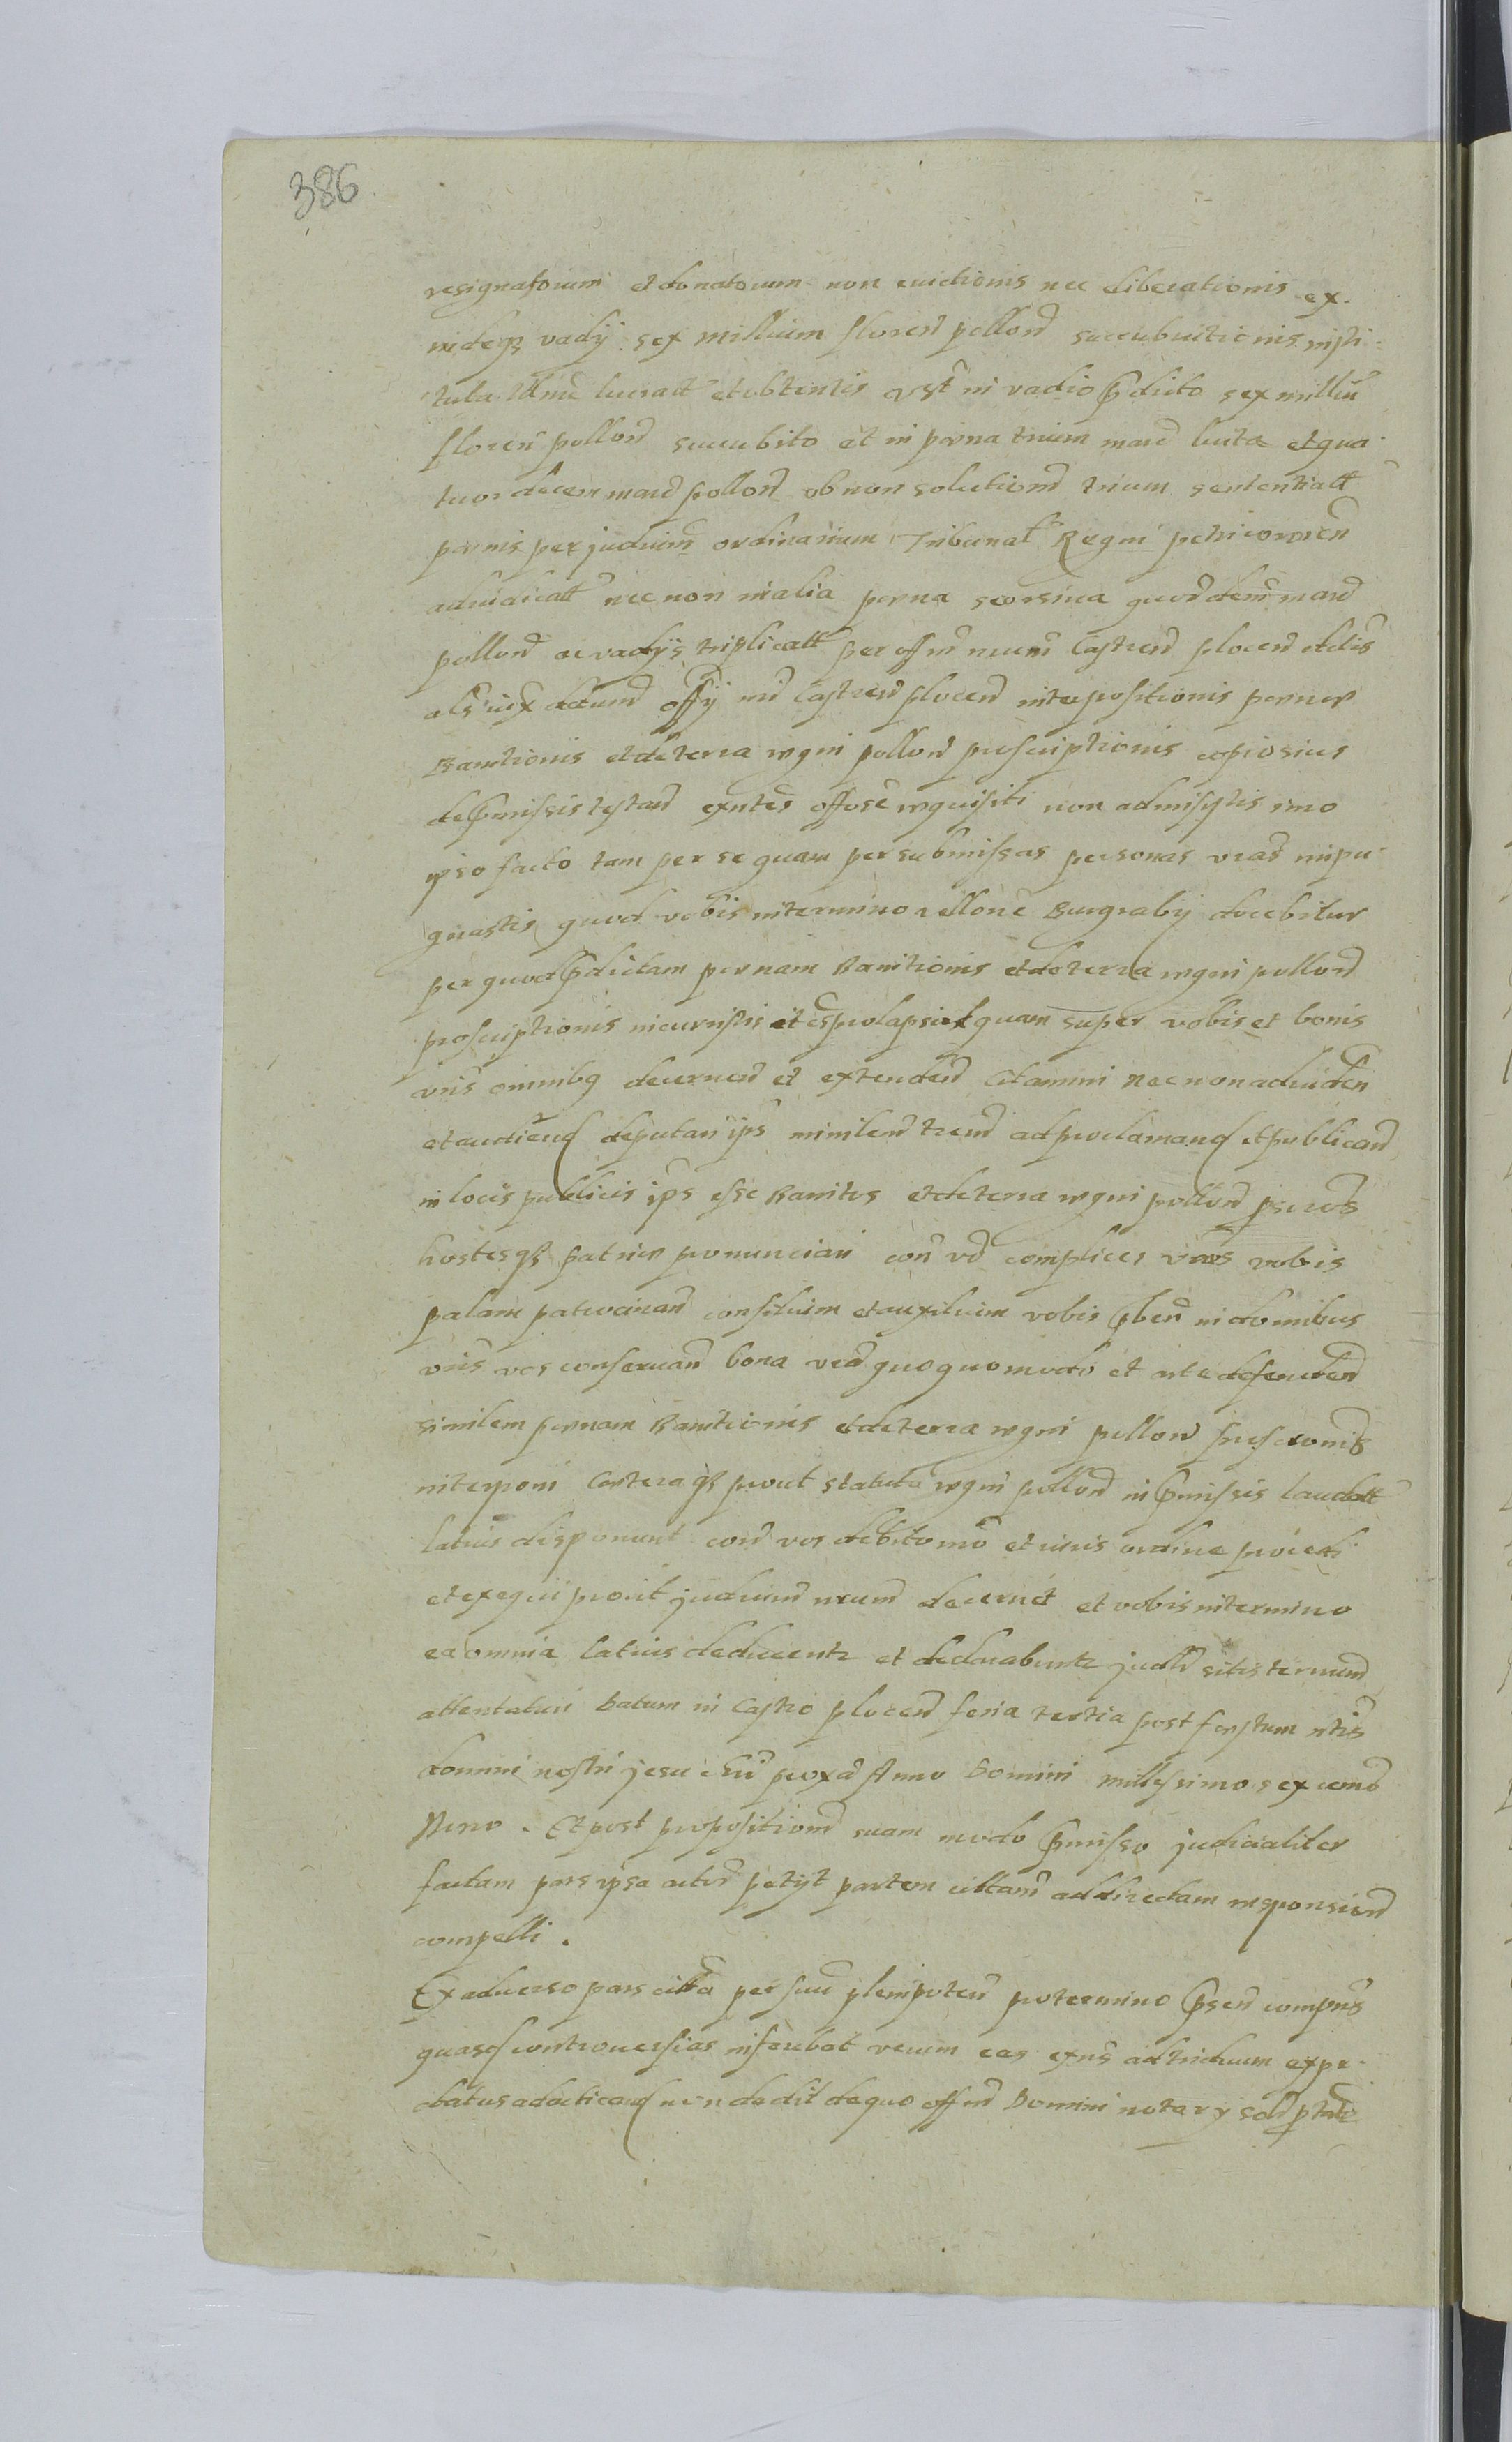 386
resignatorium et donatorum non euictionis nec liberationis ex.
indeqȝ vadÿ sex millium floren pollon̄ succubuitionis insti:
tuta lucratt et obtentis in vadio p̄dicto sex milliū
floren pollon̄ succubito et in pœna trium marc̄ luita et qua:
tuordecem marc̄ pollon̄ ob non solutionē trium sententiatt
pœnis per judicium̄ ordinarium Tribunal Regni petricouien̄
adiudicatt nec non in alia pœna seorsiua marc̄
pollon̄ ac vadijs triplicatt per offm̄ meum̄ Castren̄ plocen̄
als offÿ mei Castren̄ plocen̄ interpositionis pœnæ
Banitionis et de terra regni pollon̄ proscriptionis copiosius
de p̄missis testan̄ exn̄tes offose requisiti non admisistis imo
ipso facto tam per se quam per submissas personas vras̄ impu:
gnastis quod vobis in termino rellone Burgrabÿ docebitur
per quod p̄dictam pœnam Banitionis et de terra regni pollon̄
proscriptionis incurristis et estis prolapsi quam super vobis et bonis
vris̄ omnibȝ decernen̄ et extenden̄ Citamini nec non ad viden̄
et audiend̄ deputari ips̄ minlem̄ tren̄ ad proclamand̄ et publican̄
in locis publicis ips̄ esse Banitos et de terra regni pollon̄
hostesqȝ patriæ pronunciari con̄ vō complices vros̄ vobis
palam patrocinan̄ consilium et auxilium vobis p̄ben̄ in domibus
vris̄ vos conseruan̄ bona vrā quoquomodo et arte defenden̄
similem pœnam Banitionis et de terra regni pollon̄
interponi Cæteraqȝ prout statuta regni pollon̄ in p̄missis laudatt
latius disponunt con̄ vos debito mō et iuris ordine procedi
et exequi prout judicium̄ nrum̄ decernet et vobis in termino
ea omnia latius deducentr et declarabuntr judlr̄ sitis termum̄
attentaturi Datum in Castro plocen̄ feria tertia post festum
domini nostri jesu chri proxā Anno Domini millesimo sexcenō
Nono. Et post propositionē suam modo p̄misso judicialiter
factam pars ipsa actrā petijt partem cittam̄ ad directam responsionē
compelli.
Ex aduerso pars citta per suū plenipoten̄ pro termino p̄sen̄ compn̄s
quasd̄ controuersias inferebat verum eas exn̄s ad triduum expe:
ctatus ad acticand̄ non dedit de quo offm̄ Domini notarÿ